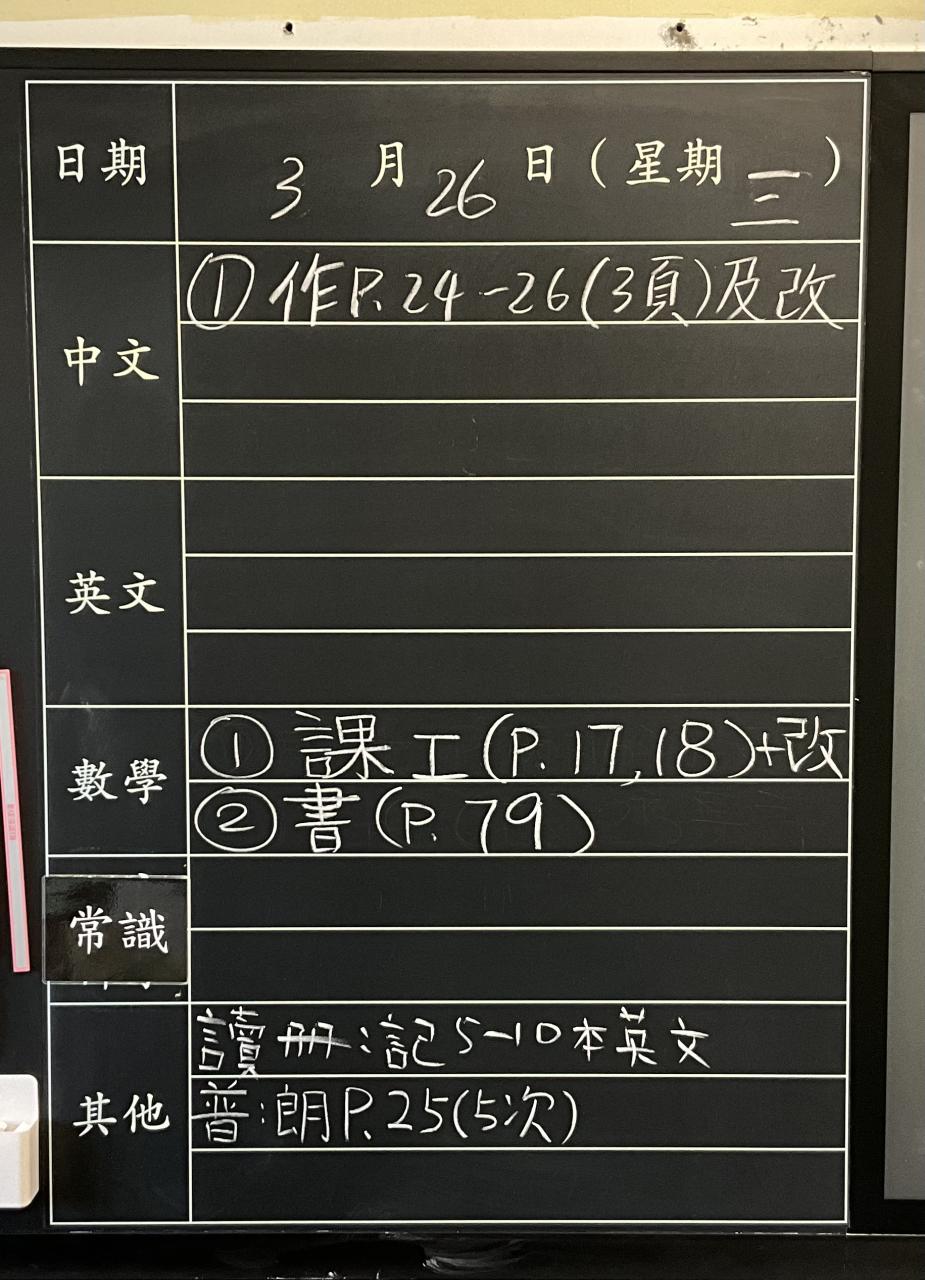 日期 3 月 26 日（星期 三）
中文 ① 作P.24-26(3頁)及改
英文
數學 ① 課工(P.17,18)+改
② 書(P.79)
常識
其他 讀冊：記5-10本英文
普：朗P.25(5次)